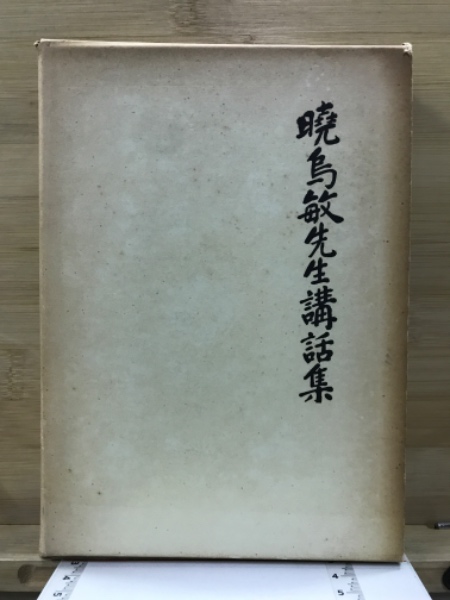 曉烏敏先生講話集